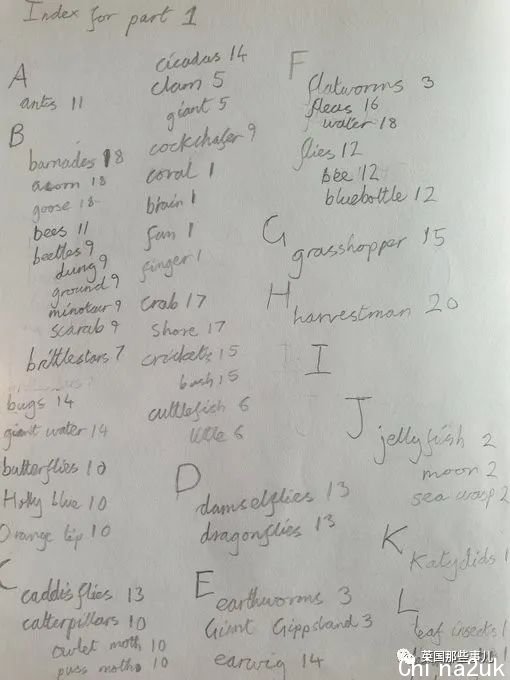 Index for part 1
A
ants 11
B
barnacles 18
acorn 18
goose 18
bees 11
beetles 9
dung 9
ground 9
minotaur 9
scarab 9
brittlestars 7
bugs 14
giant water 14
butterflies 10
Holly blue 10
Orange tip 10
C
caddisflies 13
catterpillars 10
owlet moth 10
puss moth 10
cicadas 14
clam 5
giant 5
cockchafer 9
coral 1
brain 1
fan 1
finger 1
crab 17
shore 17
crickets 15
bush 15
cuttlefish 6
little 6
D
damselflies 13
dragonflies 13
E
earthworms 3
Giant Gippsland 3
earwig 14
F
flatworms 3
fleas 16
water 18
flies 12
bee 12
bluebottle 12
G
grasshopper 15
H
harvestman 20
I
J
jellyfish 2
moon 2
sea wasp 2
K
Katydids 1
L
leaf insects 1
英国那些事儿
Chi na2uk